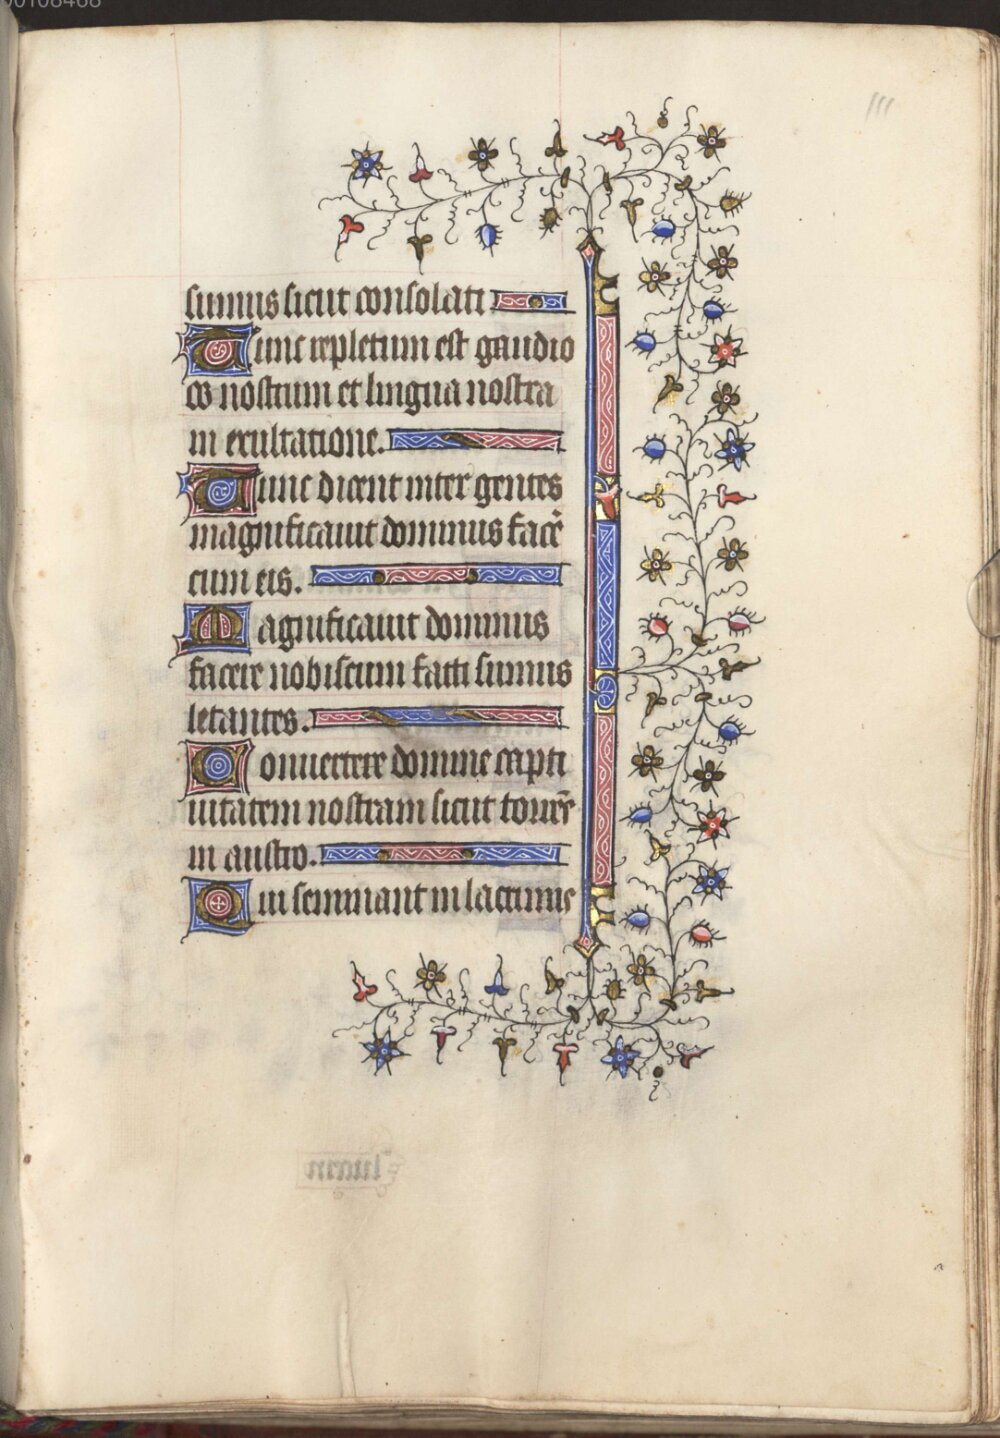 00108468
111
sumus sicut consolati
Tunc repletum est gaudio
os nostrum et lingua nostra
in exultatione.
Tunc dicent inter gentes
magnificauit dominus facẽ
cum eis.
Magnificauit dominus
facere nobiscum facti sumus
letantes.
Conuertere domine capti
uitatem nostram sicut torrẽs
in austro.
Qui seminant in lacrimis